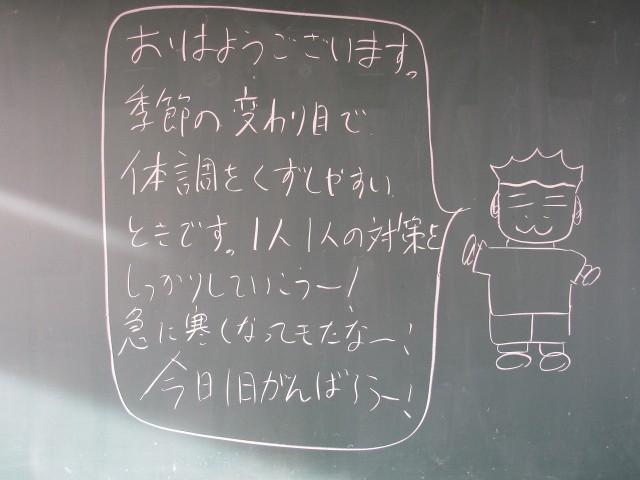 おはようございます。
季節の変わり目で
体調をくずしやすい
ときです。1人1人の対策を
しっかりしていこうー!
急に寒くなってもたなー!
今日1日がんばろうー!